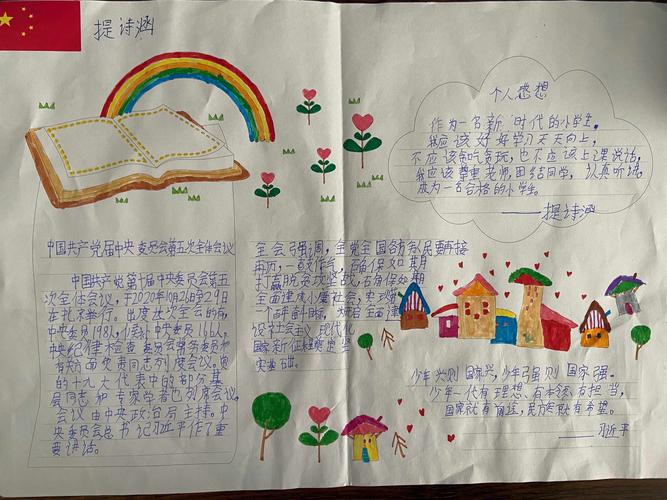 提诗涵
个人感想
作为一名新时代的小学生,
我应该好好学习天天向上,
不应该贪吃贪玩,也不应该上课说话,
我应该尊重老师团结同学,认真听课,
成为一名合格的小学生。
——提诗涵
中国共产党届中央委员会第五次全体会议
中国共产党第十届中央委员会第五
次全体会议,于2020年10月26日至29日
在北京举行。出席这次全会的有,
中央委员198人,候补中央委员166人。
中央纪律检查委员会常务委员和
有关方面负责同志列席会议。党
的十九大代表中的部分基
层同志和专家学者也列席会议。
会议由中央政治局主持。中
央委员会总书记习近平作了重
要讲话。
全会强调,全党全国各族人民要再接
再厉,一鼓作气,确保如期
打赢脱贫攻坚战,确保如期
全面建成小康社会,实现第
一个百年奋斗目标,为全面建
设社会主义现代化
国家新征程奠定坚
实基础。
少年兴则国家兴,少年强则国家强。
少年一代有理想、有本领、有担当,
国家就有前途,民族就有希望。
——习近平